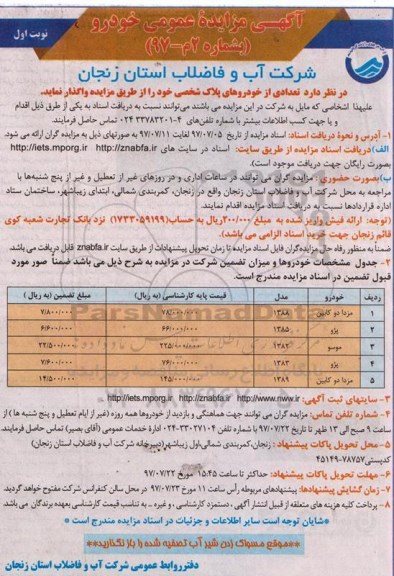 آگهی مزایدهٔ عمومی خودرو
(بشماره ۲م-۹۷)
نوبت اول
شرکت آب و فاضلاب استان زنجان
در نظر دارد تعدادی از خودروهای پلاک شخصی خود را از طریق مزایده واگذار نماید.
علیهذا اشخاصی که مایل به شرکت در این مزایده می باشند می‌توانند نسبت به دریافت اسناد به یکی از طرق ذیل اقدام
و یا جهت کسب اطلاعات بیشتر با شماره تلفن‌های ۴-۳۳۷۸۳۲۰۱ ۰۲۴ تماس حاصل فرمایند.
۱- آدرس و نحوهٔ دریافت اسناد: اسناد مزایده از تاریخ ۹۷/۰۷/۰۵ لغایت ۹۷/۰۷/۱۱ به صورتهای ذیل به مزایده گران ارائه می شود.
الف) دریافت اسناد مزایده از طریق سایت: اسناد در سایت های http://iets.mporg.ir http://znabfa.ir
بصورت رایگان جهت دریافت موجود است.
ب) بصورت حضوری: مزایده گران می توانند در ساعات اداری و در روزهای غیر از تعطیل و غیر از پنج شنبه‌ها با
مراجعه به محل شرکت آب و فاضلاب استان زنجان واقع در زنجان، کمربندی شمالی، ابتدای زیباشهر، ساختمان ستاد
اداره قراردادها نسبت به دریافت اسناد مزایده اقدام نمایند.
(توجه: ارائه فیش واریز شده به مبلغ ۲۰۰/۰۰۰ریال به حساب(۱۷۳۳۰۵۹۱۹۹) نزد بانک تجارت شعبه کوی
قائم زنجان جهت خرید اسناد الزامی می باشد).
ضمناً به منظور رفاه حال مزایده‌گران فایل اسناد مزایده تا زمان تحویل پیشنهادات از طریق سایت znabfa.ir قابل دریافت می باشد.
۲- جدول مشخصات خودروها و میزان تضمین شرکت در مزایده به شرح ذیل می باشد ضمناً صور مورد
قبول تضمین در اسناد مزایده مندرج است.
ردیف خودرو مدل قیمت پایه کارشناسی (به ریال) مبلغ تضمین (به ریال)
۱ مزدا دو کابین ۱۳۸۸ ۷۸/۰۰۰/۰۰۰ ۷/۸۰۰/۰۰۰
۲ پژو ۱۳۸۵ ۶۶/۰۰۰/۰۰۰ ۶/۶۰۰/۰۰۰
۳ موسو ۱۳۸۲ ۲۲۵/۰۰۰/۰۰۰ ۲۲/۵۰۰/۰۰۰
۴ پژو ۱۳۸۳ ۷۶/۰۰۰/۰۰۰ ۷/۶۰۰/۰۰۰
۵ مزدا دو کابین ۱۳۸۹ ۱۴۵/۰۰۰/۰۰۰ ۱۴/۵۰۰/۰۰۰
۳- سایتهای ثبت آگهی: http://iets.mporg.ir http://znabfa.ir http://www.nww.ir
۴- شماره تلفن تماس: مزایده گران می توانند جهت هماهنگی و بازدید از خودروها همه روزه (غیر از ایام تعطیل و پنج شنبه ها) از
ساعت ۹ صبح الی ۱۳ ظهر تا تاریخ ۹۷/۰۷/۲۲ با شماره تلفن ۳۳۰۲۷۱۰۴-۰۲۴ اداره خدمات عمومی (آقای بصیر) تماس حاصل فرمایند.
۵- محل تحویل پاکات پیشنهاد: زنجان،کمربندی شمالی،اول زیباشهر(دبیرخانه شرکت آب و فاضلاب استان زنجان)
کدپستی۷۸۷۵۷-۴۵۱۴۹
۶- مهلت تحویل پاکات پیشنهاد: حداکثر تا ساعت ۱۵:۴۵ مورخ ۹۷/۰۷/۲۲
۷- زمان گشایش پیشنهادها: پیشنهادهای مربوطه رأس ساعت ۱۱ مورخ ۹۷/۰۷/۲۳ در محل سالن کنفرانس شرکت مفتوح خواهد گردید.
۸- پرداخت کلیه هزینه های متعلقه از قبیل انتشار آگهی ، دستمزد کارشناسی ، و غیره .. به تناسب قیمت کارشناسی بعهده برندگان می باشد.
*شایان توجه است سایر اطلاعات و جزئیات در اسناد مزایده مندرج است*
**موقع مسواک زدن شیر آب تصفیه شده را باز نگذارید**
دفتر روابط عمومی شرکت آب و فاضلاب استان زنجان